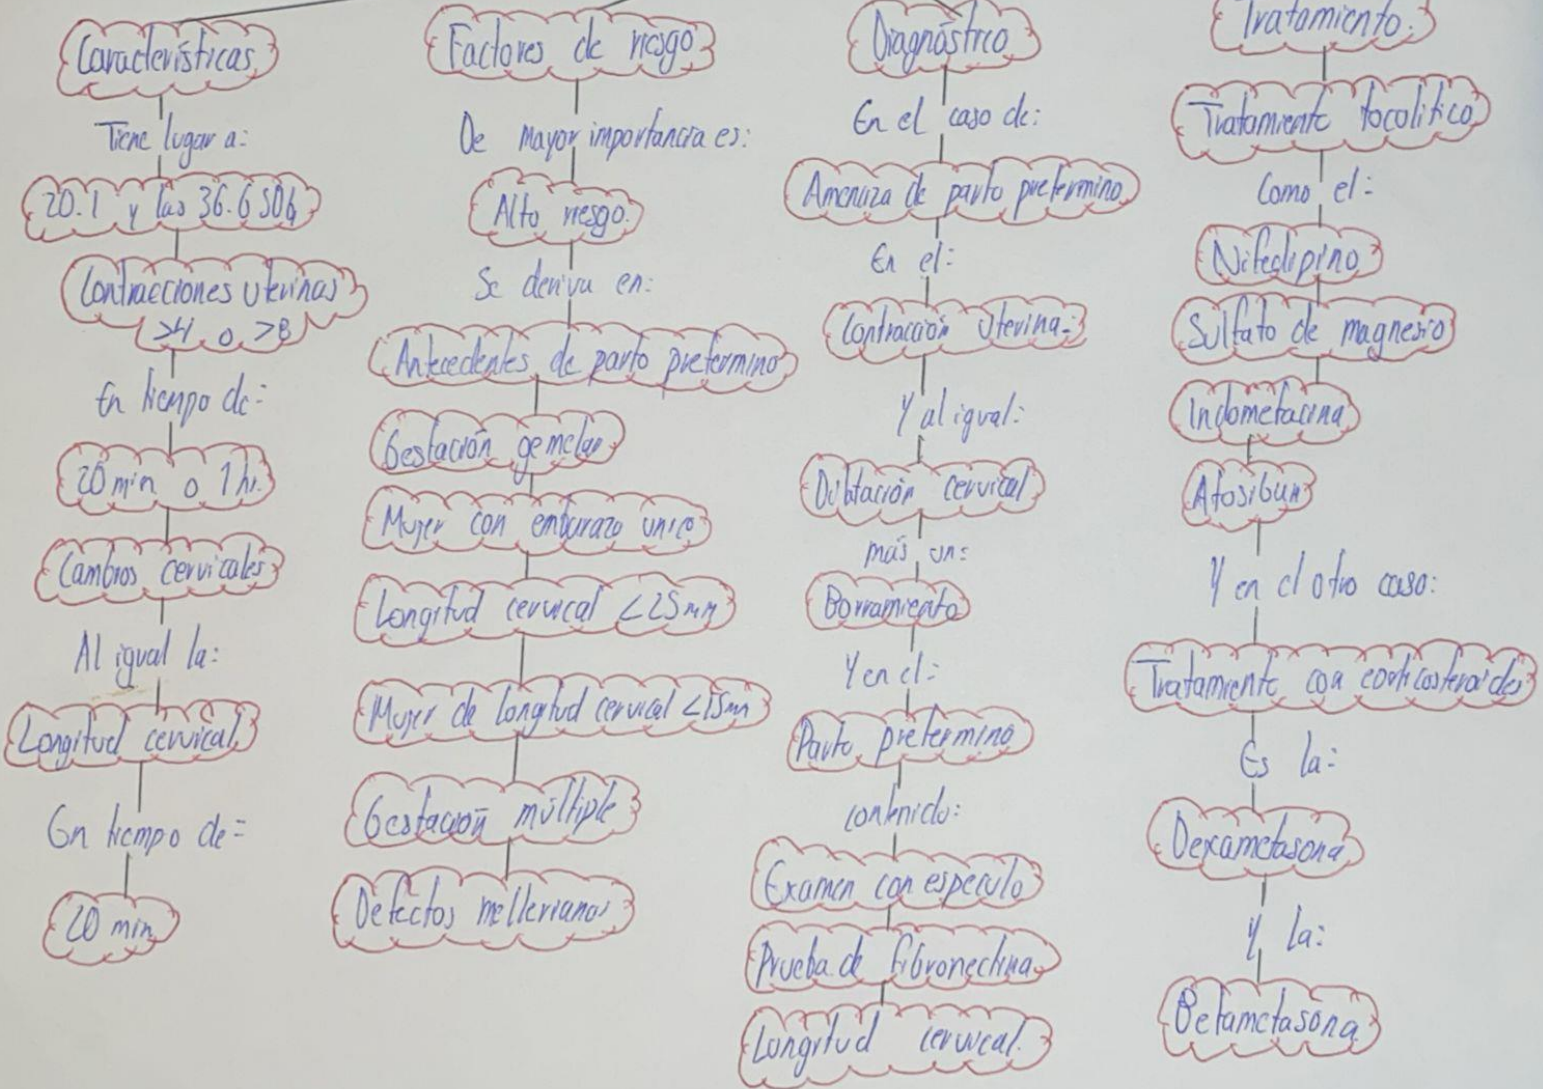 Características
Tiene lugar a:
20.1 y las 36.6 SDG
Contracciones uterinas
>4 o >8
En tiempo de:
20 min o 1 hr.
Cambios cervicales
Al igual la:
Longitud cervical
En tiempo de:
20 min
Factores de riesgo
De mayor importancia es:
Alto riesgo.
Se deriva en:
Antecedentes de parto pretermino
Gestación gemelar
Mujer con embarazo unico
Longitud cervical <25mm
Mujer de longitud cervical <15mm
Gestación múltiple
Defectos mellerianos
Diagnóstico
En el caso de:
Amenaza de parto pretermino
En el:
Contracción uterina.
Y al igual:
Dilatación cervical
más un:
Borramiento
Y en el:
Parto pretermino
contenido:
Examen con especulo
Prueba de fibronectina
Longitud cervical.
Tratamiento.
Tratamiento tocolitico
Como el:
Nifedipino
Sulfato de magnesio
Indometacina
Atosiban
Y en el otro caso:
Tratamiento con corticosteroides
Es la:
Dexametasona
Y la:
Betametasona